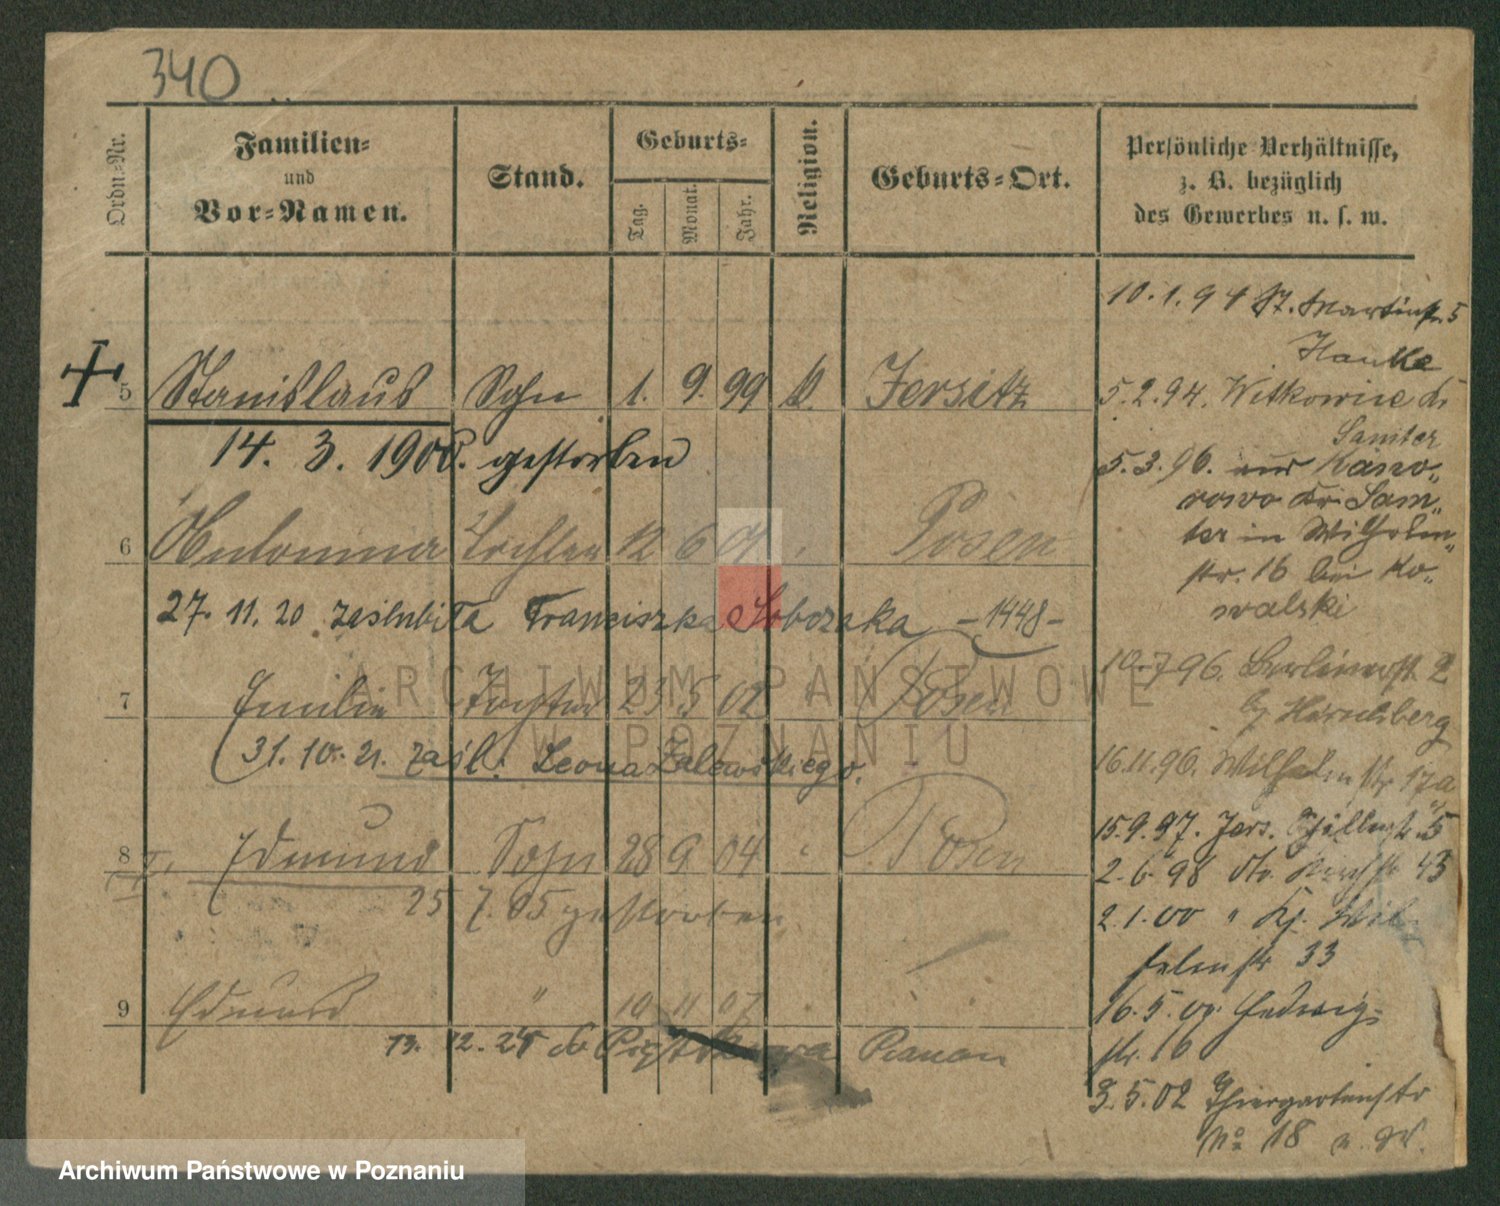 340
Ordn.-Nr.
Familien-
und
Vor-Namen.
Stand.
Geburts-
Tag.
Monat.
Jahr.
Religion.
Geburts-Ort.
Persönliche Verhältnisse,
z. B. bezüglich
des Gewerbes u. s. w.
5 Stanislaus Sohn 1. 9. 99 Jersitz
14. 3. 1900. gestorben
6 Antonina Tochter 12 6 01 Posen
27. 11. 20 zaślubiła Franciszka Sobczaka -1448-
7 Emilie Tochter 23 5 02 Posen
31. 10. 21. zaśl. Leona Zalewskiego.
8 Edmund Sohn 28 9 04 Posen
25 7. 05 gestorben
9 Edmund " 10 11 07
13. 12. 24 do
10. 1. 94 St. Martinstr. 5
Hanke
5. 2. 94. Witkowice Kr
Samter
5. 3. 96. aus
Kr. Sam-
ter in Wilhelm-
str. 16 bei Ko-
walski
10. 7 96. Berlinerstr 2
b/ Hirschberg
16. 11. 96. Wilhelmstr 17a
15. 9. 97. Jers. 5
2. 6. 98 dto 43
2. 1. 00 " Wil-
helmstr 33
16. 5. 00. Hedwig-
str. 16
3. 5. 02 Thiergartenstr
No 18
ARCHIWUM PAŃSTWOWE
W POZNANIU
Archiwum Państwowe w Poznaniu